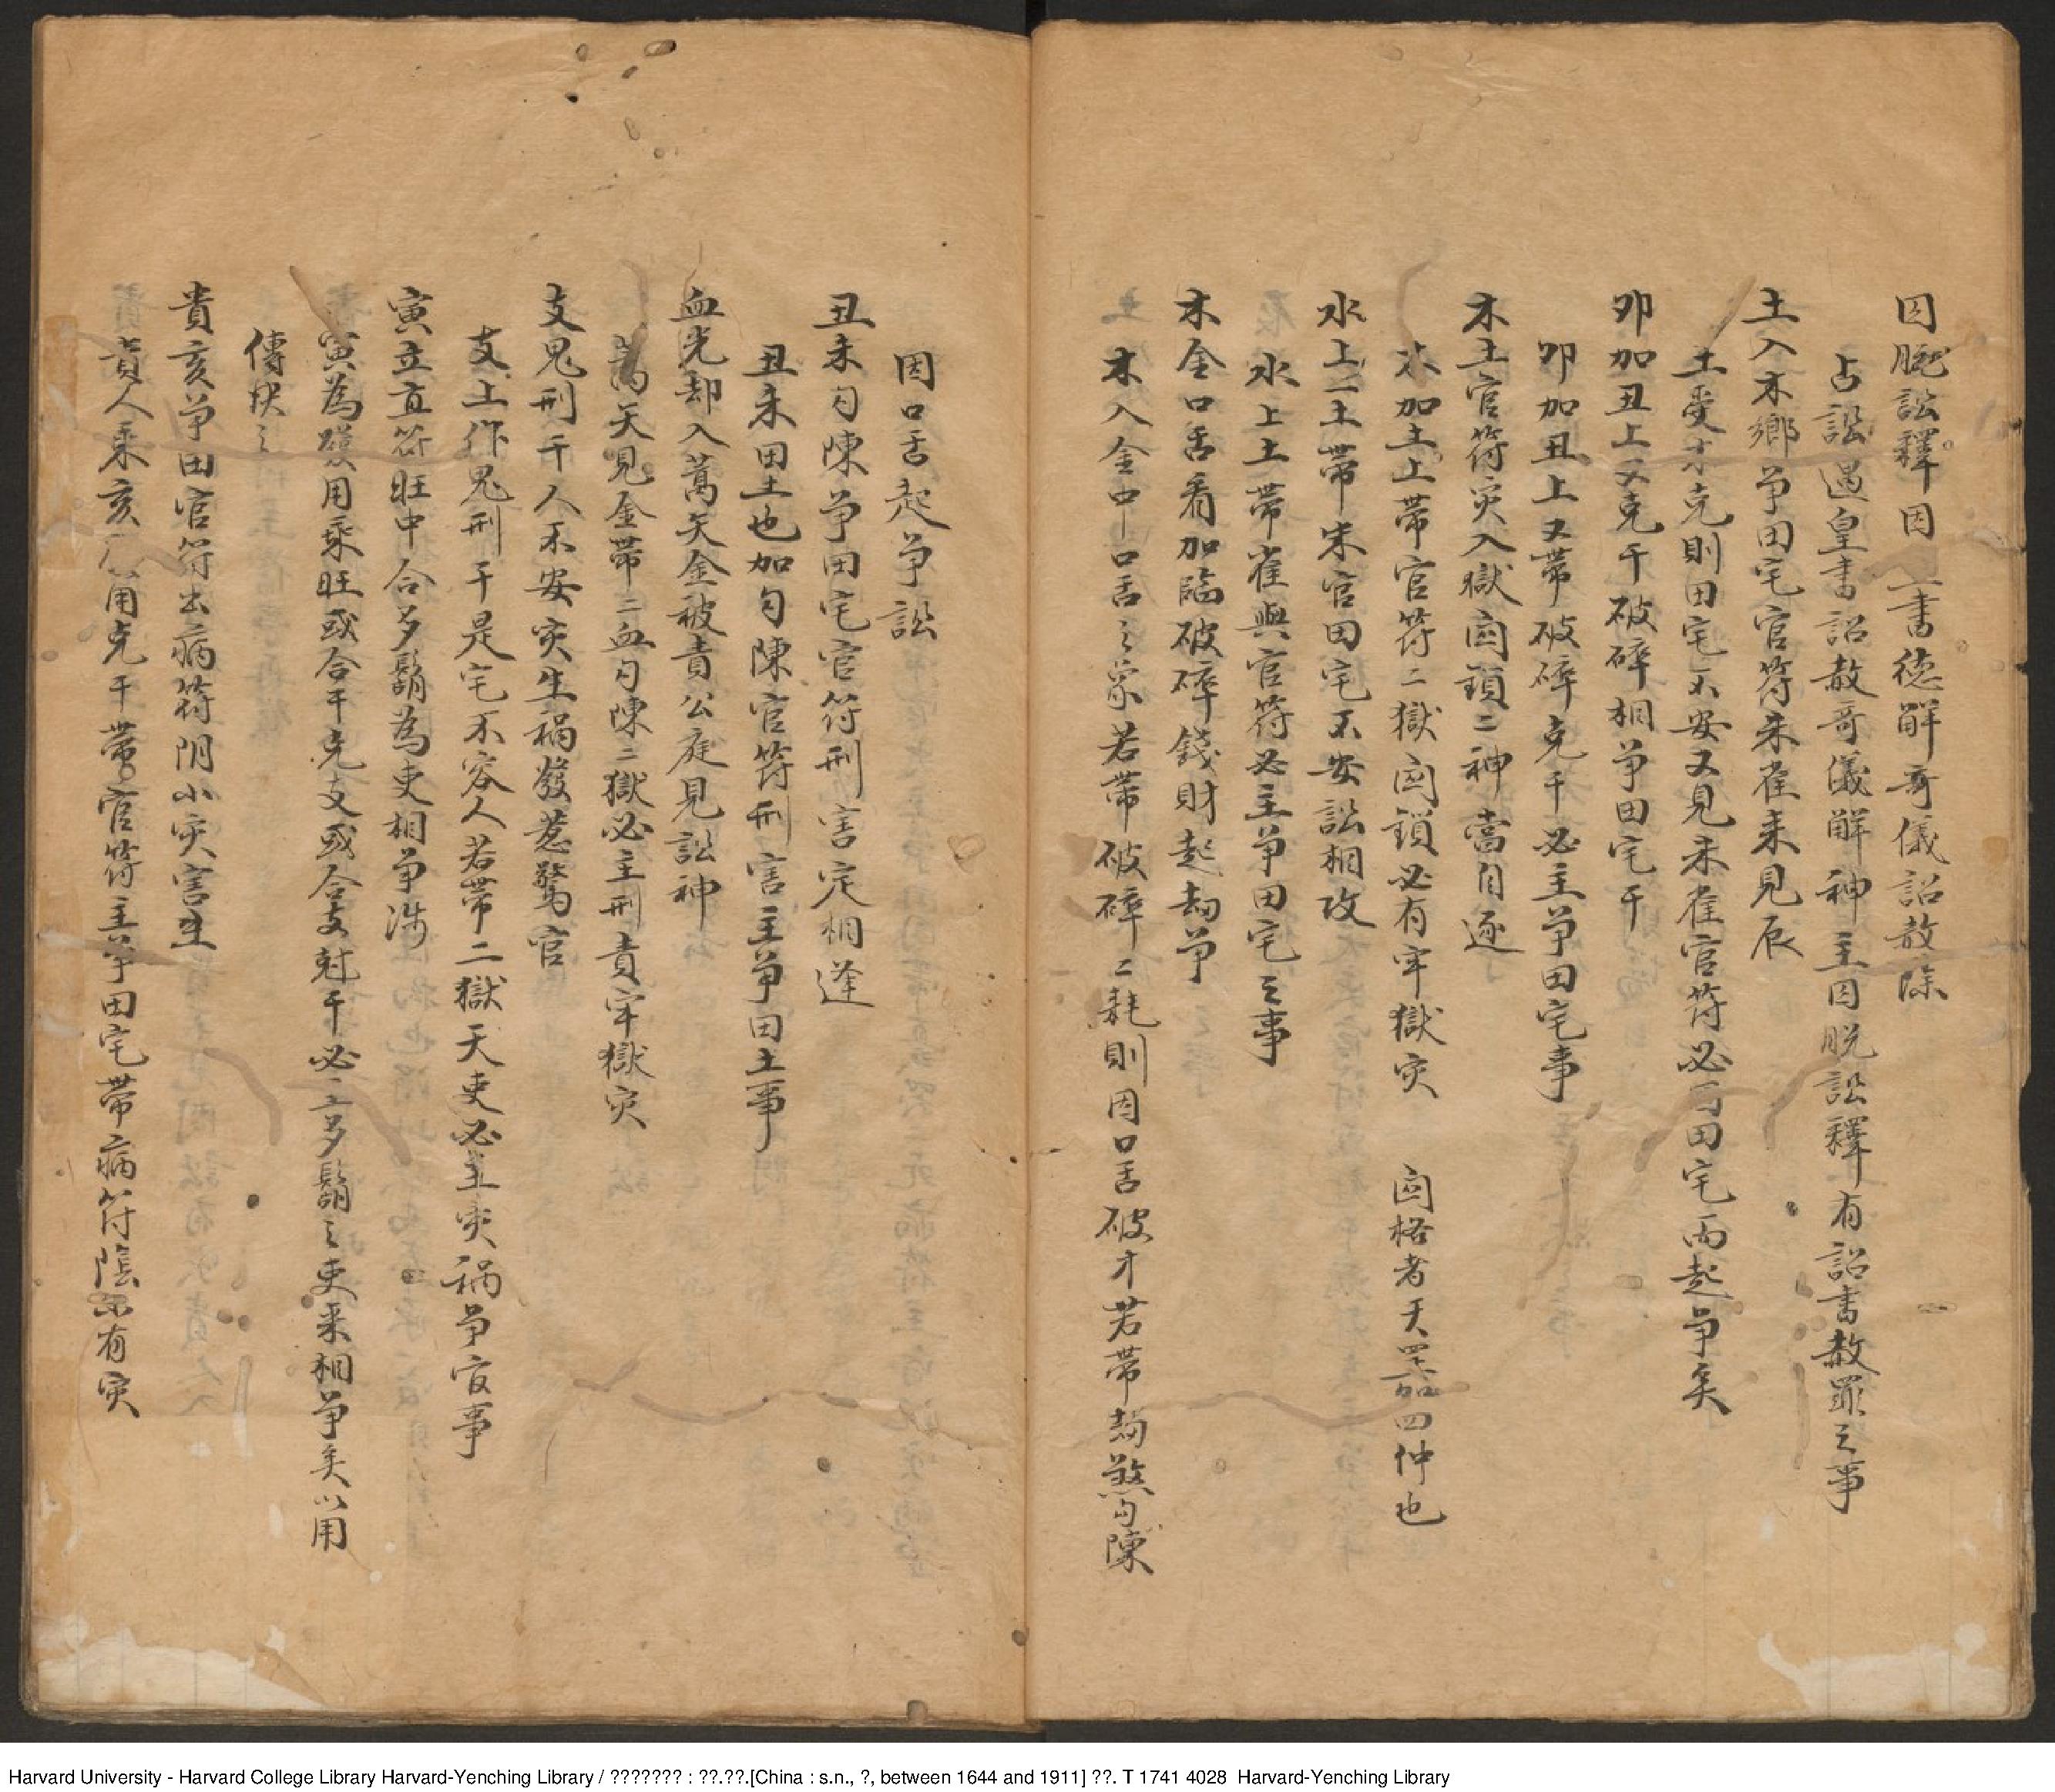 囚脫訟釋因 書德解奇儀詔赦除
占訟遇皇書詔赦奇儀解神主囚脫訟釋有詔書赦罪之事
土入木鄉爭田宅官符朱雀來見辰
土受木克則田宅不安又見朱雀官符必 田宅而起爭矣
卯加丑上又克干破碎相爭田宅干
卯加丑上又帶破碎克干必主爭田宅事
木土官符灾入獄関鎖二神當自逐
木加土上帶官符二獄関鎖必有牢獄灾 関格者天 四仲也
水上二土帶朱官田宅不安訟相攻
水上土帶雀與官符必主爭田宅之事
木金口舌看加臨破碎錢財起刼爭
木入金中口舌之象若帶破碎二耗則因口舌破才若帶刼煞勾陳
因口舌起爭訟
丑未勾陳爭田宅官符刑害定相逢
丑未田土也加勾陳官符刑害主爭田土事
血光却入蒿矢金被責公庭見訟神
蒿矢見金帶二血勾陳二獄必主刑責牢獄灾
支鬼刑干人不安灾生禍發惹驚官
支上作鬼刑干是宅不容人若帶二獄天吏必主灾禍爭官事
寅立直符旺中合多鬍為吏相爭涉
寅為鬍用乘旺或合干克支或合支尅干必主多鬍之吏來相爭矣以用
傳決之
貴亥爭田官符出病符陰小灾害生
貴人乘亥 用克干帶官符主爭田宅帶病符陰小有灾